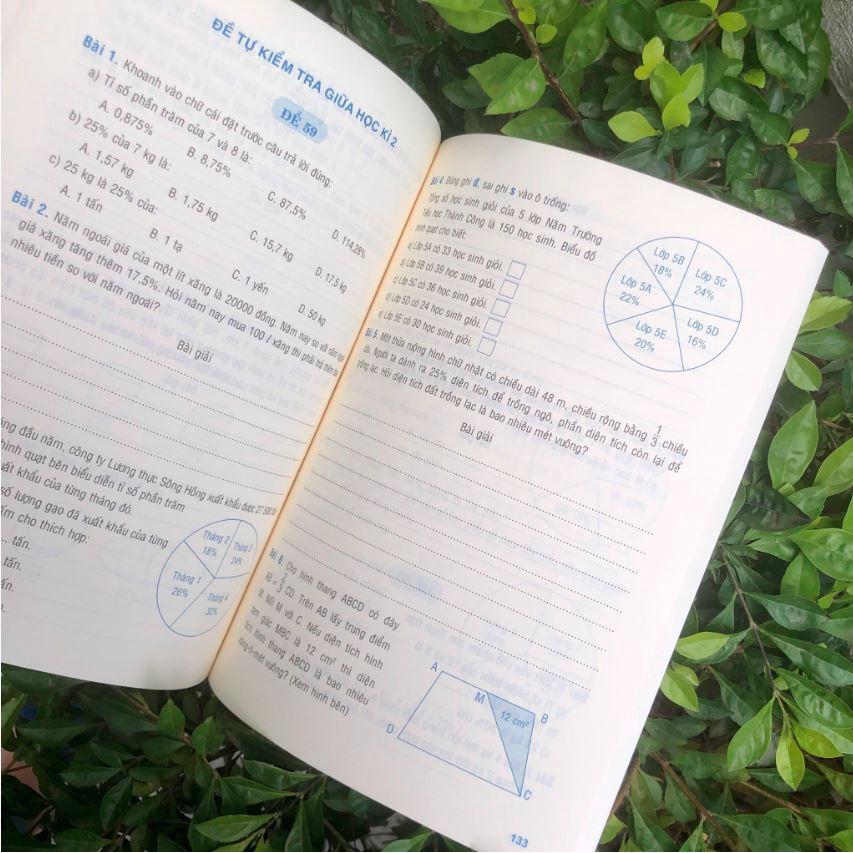 ĐỀ TỰ KIỂM TRA GIỮA HỌC KÌ 2
ĐỀ 59
Bài 1. Khoanh vào chữ cái đặt trước câu trả lời đúng:
a) Tỉ số phần trăm của 7 và 8 là:
A. 0,875% B. 8,75% C. 87,5% D. 114,28%
b) 25% của 7 kg là:
A. 1,57 kg B. 1,75 kg C. 15,7 kg D. 17,5 kg
c) 25 kg là 25% của:
A. 1 tấn B. 1 tạ C. 1 yến D. 50 kg
Bài 2. Năm ngoái giá của một lít xăng là 20000 đồng. Năm nay so với năm ngoái
giá xăng tăng thêm 17,5%. Hỏi năm nay mua 100 l xăng thì phải trả thêm bao
nhiêu tiền so với năm ngoái?
Bài giải
áng đầu năm, công ty Lương thực Sông Hồng xuất khẩu được 27 500 tấn
hình quạt bên biểu diễn tỉ số phần trăm
uất khẩu của từng tháng đó.
số lượng gạo đã xuất khẩu của từng
ấm cho thích hợp:
... tấn.
tấn.
ấn.
Tháng 2
18%
Tháng 3
24%
Tháng 1
26%
Tháng 4
32%
Bài 4. Đúng ghi đ, sai ghi s vào ô trống:
Tổng số học sinh giỏi của 5 lớp Năm Trường
Tiểu học Thành Công là 150 học sinh. Biểu đồ
hình quạt cho biết:
a) Lớp 5A có 33 học sinh giỏi.
b) Lớp 5B có 39 học sinh giỏi.
c) Lớp 5C có 36 học sinh giỏi.
d) Lớp 5D có 24 học sinh giỏi.
e) Lớp 5E có 30 học sinh giỏi.
Lớp 5B
18%
Lớp 5C
24%
Lớp 5A
22%
Lớp 5D
16%
Lớp 5E
20%
Bài 5. Một thửa ruộng hình chữ nhật có chiều dài 48 m, chiều rộng bằng 1/3 chiều
dài. Người ta dành ra 25% diện tích để trồng ngô, phần diện tích còn lại để
trồng lạc. Hỏi diện tích đất trồng lạc là bao nhiêu mét vuông?
Bài giải
Bài 6. Cho hình thang ABCD có đáy
AB = 2/3 CD. Trên AB lấy trung điểm
M. Nối M với C. Nếu diện tích hình
tam giác MBC là 12 cm² thì diện
tích hình thang ABCD là bao nhiêu
xăng-ti-mét vuông? (Xem hình bên)
A
M
B
12 cm²
D
C
133